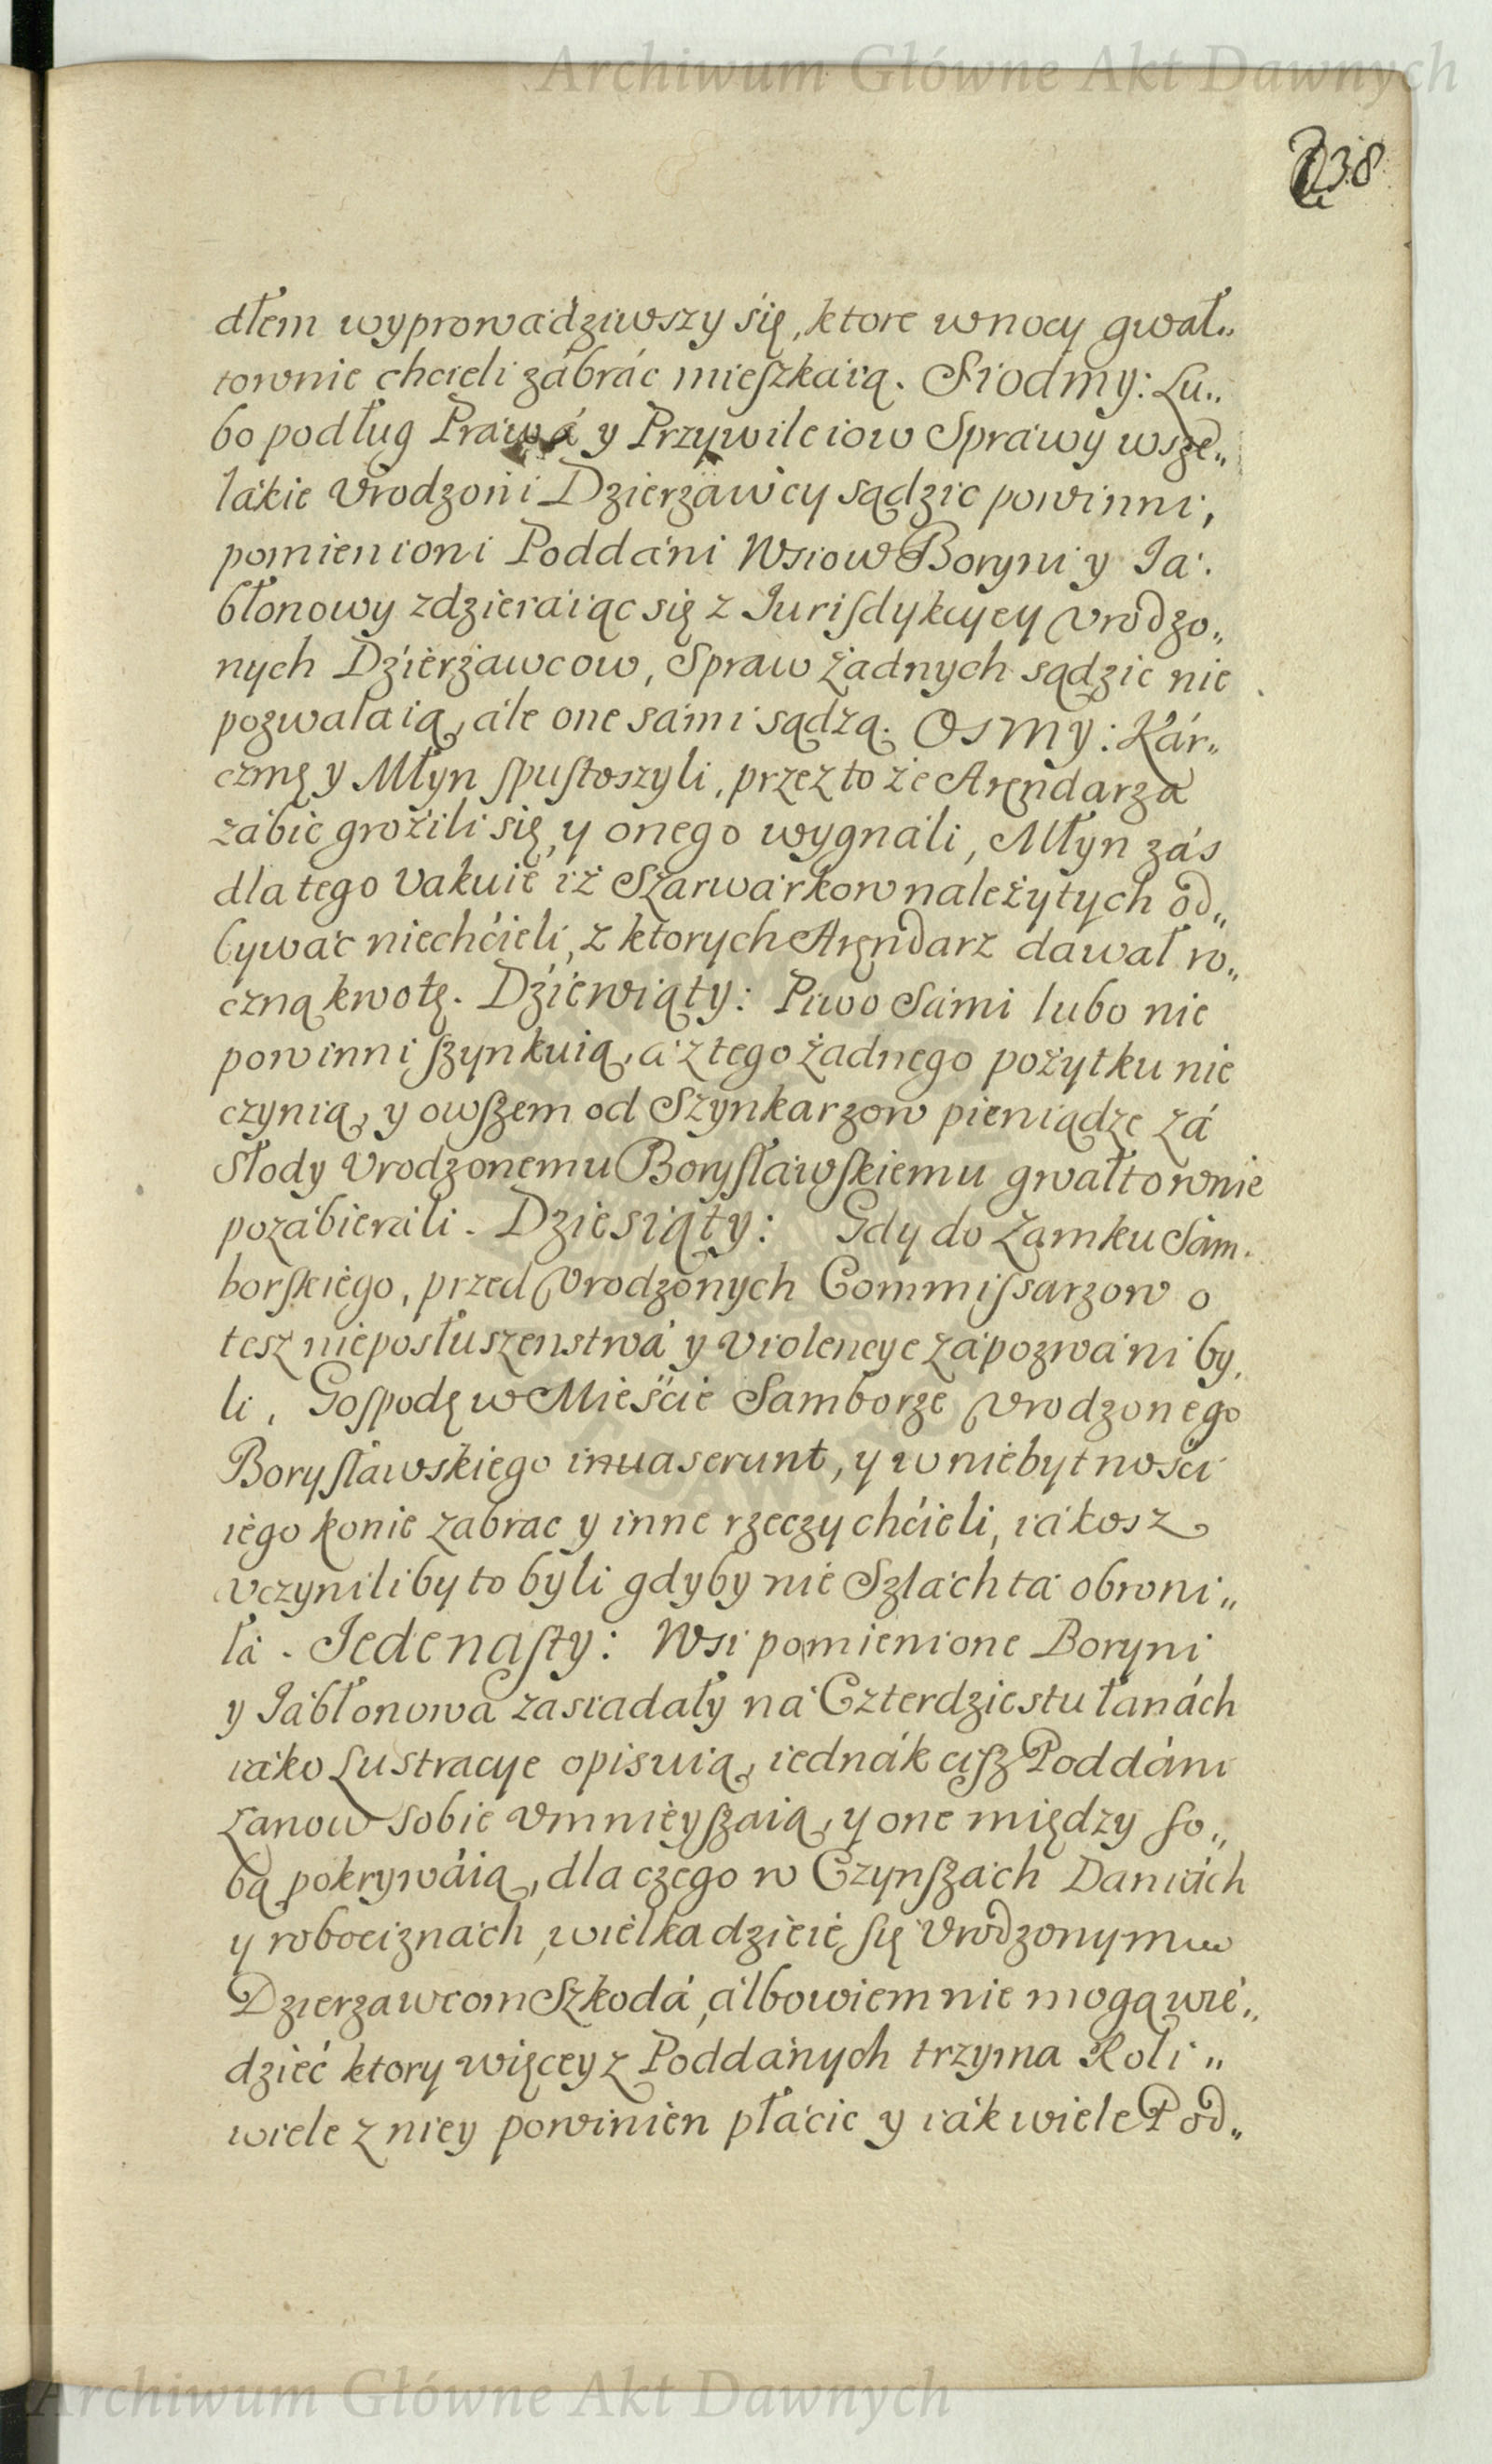 Archiwum Główne Akt Dawnych
238
dłem wyprowadziwszy się, ktore w nocy gwał„
townie chcieli zábráć mieſzkaią. Siodmy: Lu„
bo podług Prawá y Przywileiow Sprawy wsze„
lakie Vrodzoni Dzierżawcy sądzic powinni,
pomienioni Poddáni Wsiow Boryni y Ja.
błonowy zdzieraiąc się z Jurisdykcyey Vrodzo„
nych Dzierżawcow, Spraw żadnych sądzic nie
pozwalaią, ále one sámi sądzą. Osmy: Kár„
czmę y Młyn ſpuſtoszyli, przez to że Arendarza
zábic grozili się, y onego wygnáli, Młyn záś
dla tego vakuie iż Szarwarkow należytych od„
bywác niechćieli, z ktorych Arendarz dawał ro„
czną kwotę. Dźiewiąty: Piwo Sámi lubo nie
powinni ſzynkuią, á z tego żadnego pożytku nie
czynią, y owſzem od Szynkarzow pieniądze zá
Słody Vrodzonemu Boryſławſkiemu gwałtownie
pozábierali. Dziesiąty: Gdy do Zamku Sám.
borſkiego, przed Vrodzonych Commiſsarzow o
tesz nieposłuszenstwá y violencye zápozwáni by,
li, Goſpodę w Mieście Samborze Vrodzonego
Boryſławskiego inuaserunt, y w niebytnosci
iego konie zabrac y inne rzeczy chćieli, iákosz
vczyniliby to byli gdyby nie Szláchtá obroni„
łá. Jedenaſty: Wsi pomienione Boryni
y Jábłonowa zasiadały ná Czterdziestu łanách
iáko Lustracye opisuią, iednák ciſz Poddáni
Łanow sobie vmnieyſzaią, y one między ſo„
bą pokrywáią, dla czego w Czynſzách Daniách
y robociznách, wielka dzieie ſię Vrodzonym
Dzierzawcom Szkodá, álbowiem nie mogą wie„
dzieć ktory więcey z Poddánych trzyma Roli„
wiele z niey powinien płácic y iák wiele Pod„
Archiwum Główne Akt Dawnych